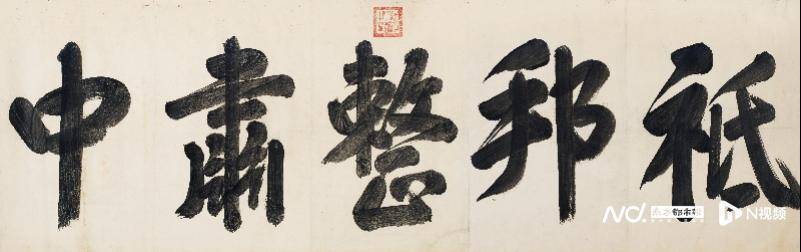 祗邦整肅中
N视频